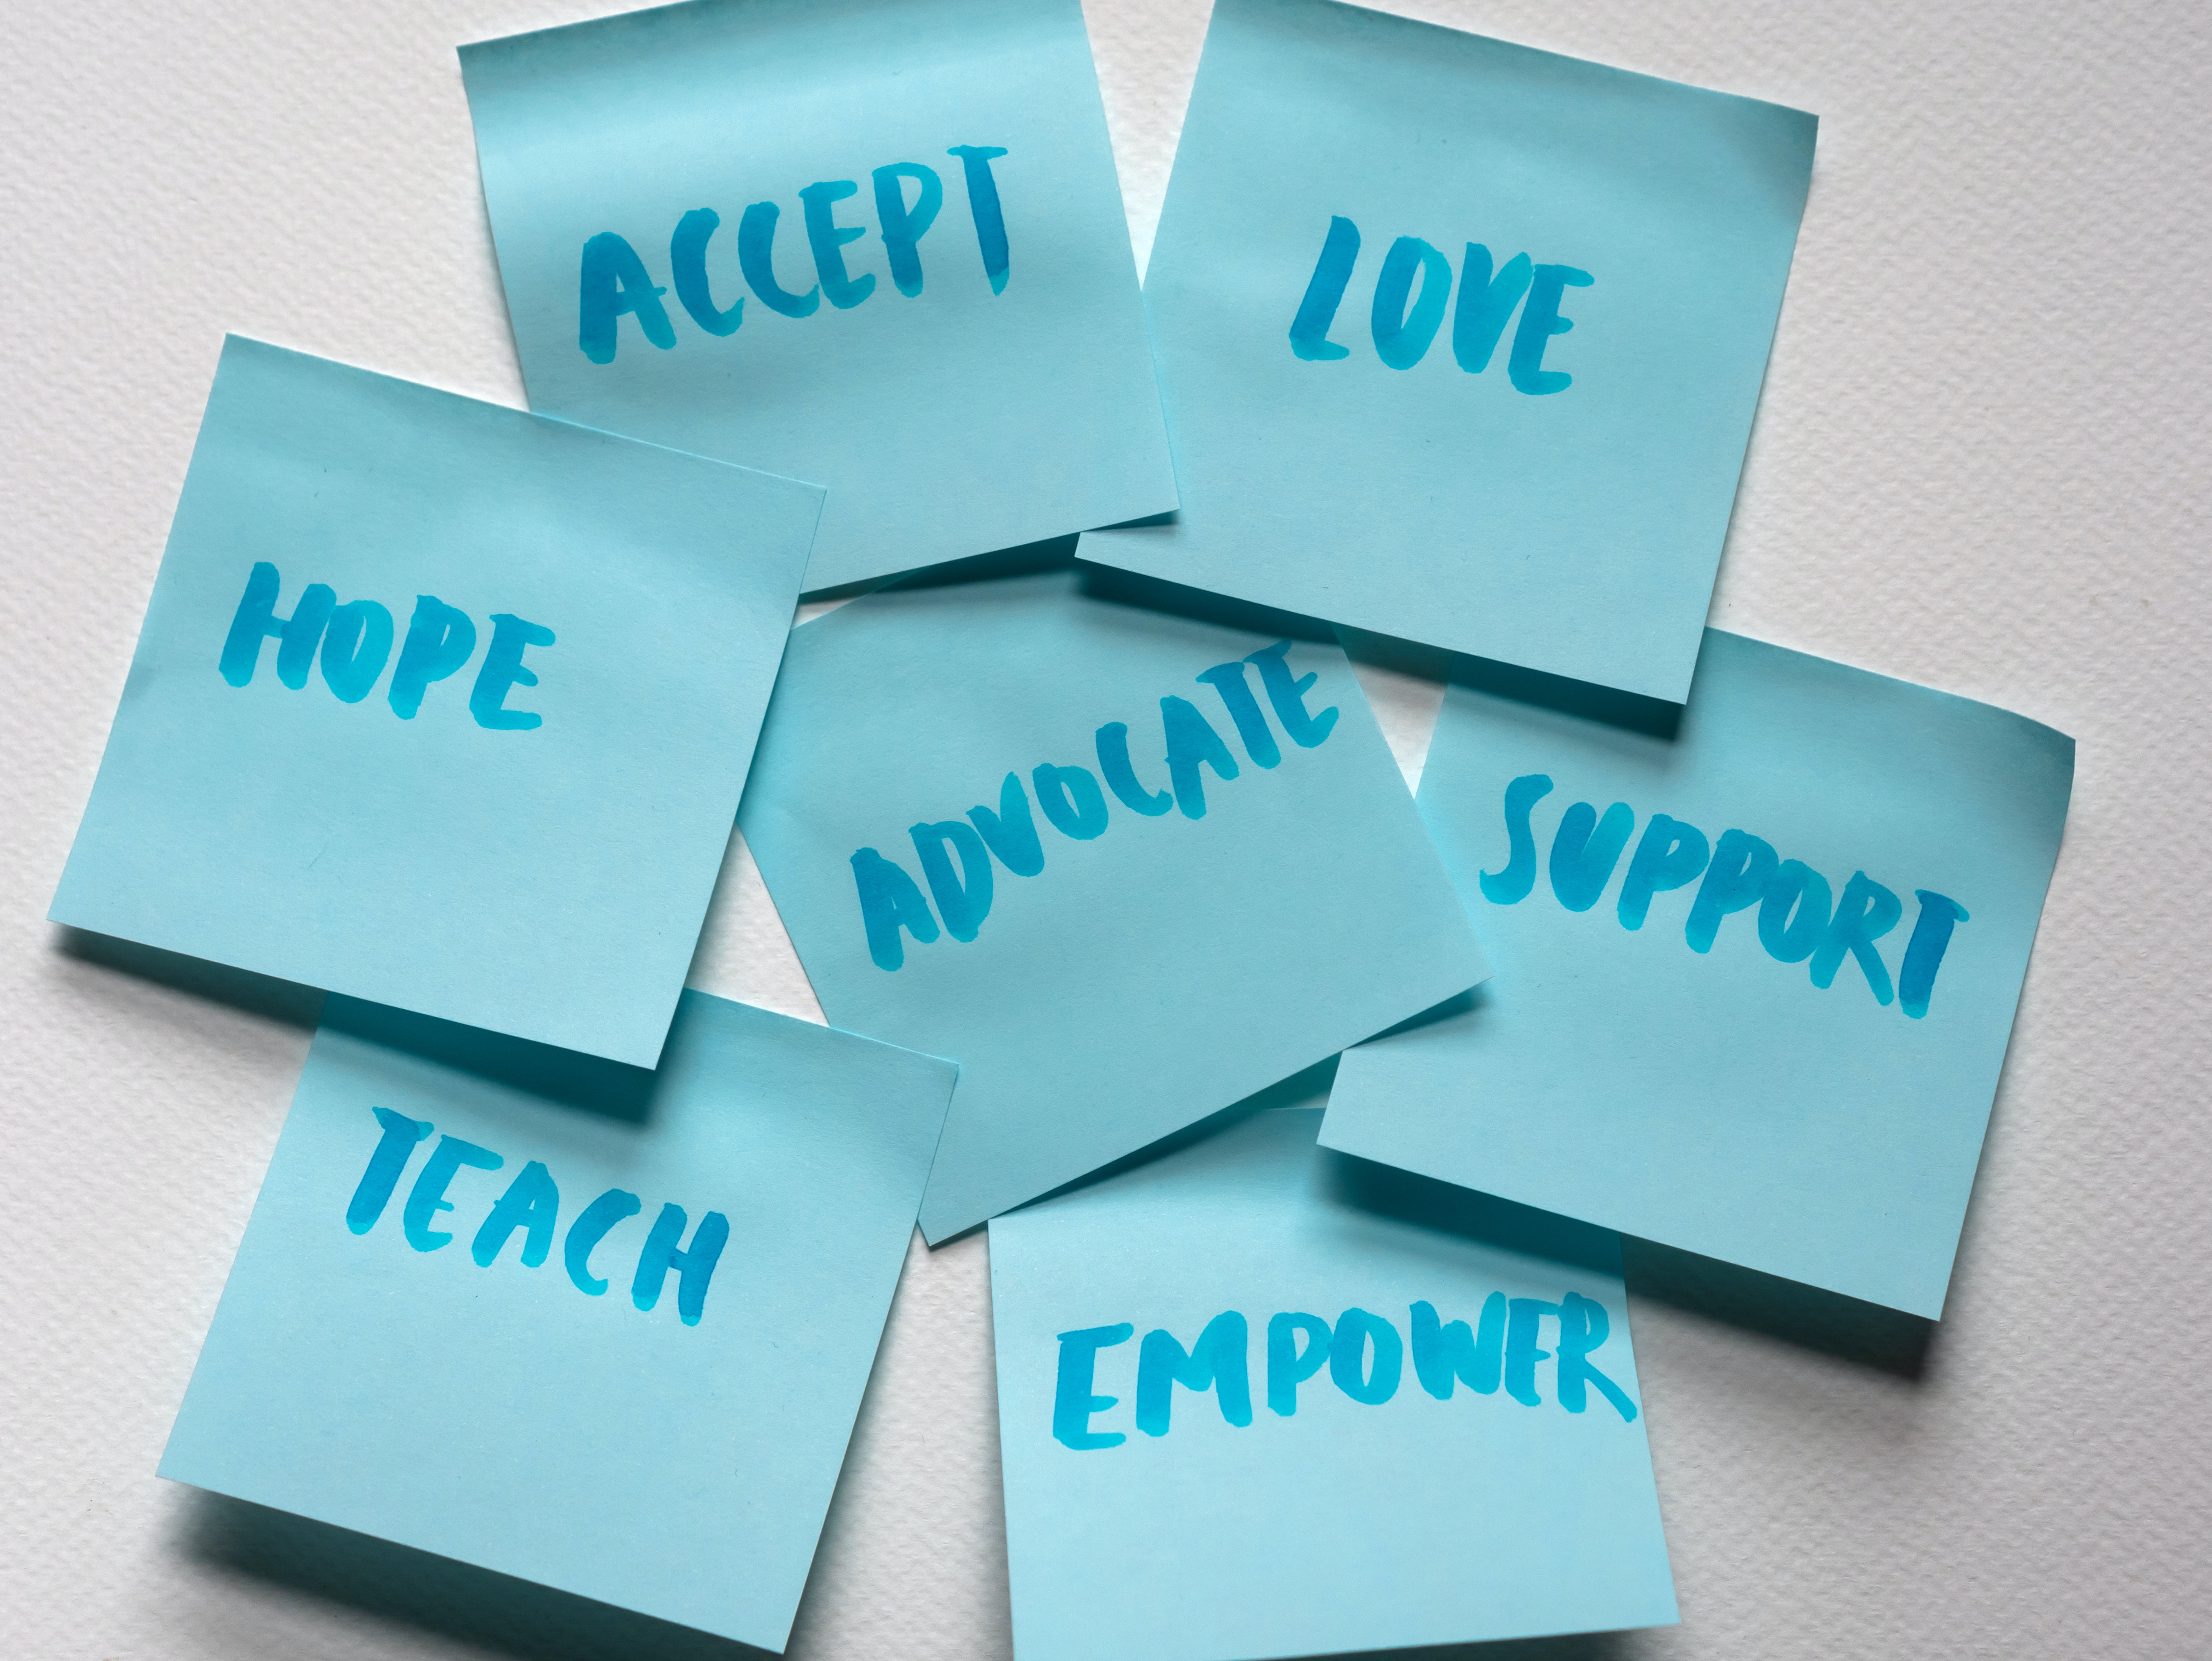 ACCEPT
LOVE
HOPE
ADVOCATE
SUPPORT
TEACH
EMPOWER